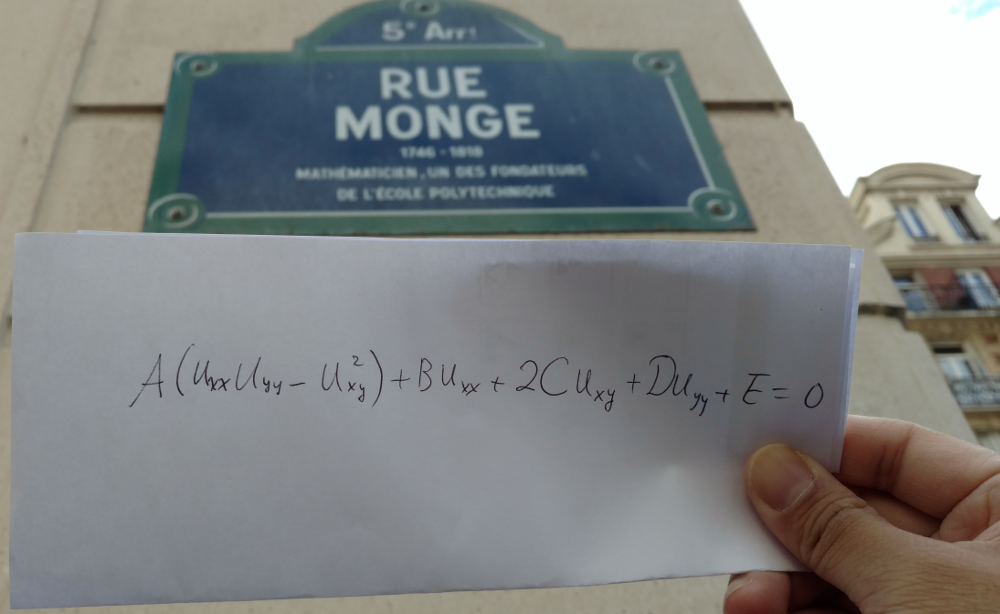 5e Arrt
RUE
MONGE
1746 - 1818
MATHÉMATICIEN, UN DES FONDATEURS
DE L'ÉCOLE POLYTECHNIQUE
A(u_xx u_yy − u_xy^2) + B u_xx + 2C u_xy + D u_yy + E = 0